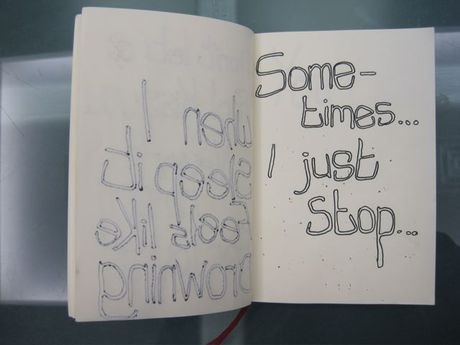 when I
sleep it
feels like
drowning
Some-
times...
I just
stop...